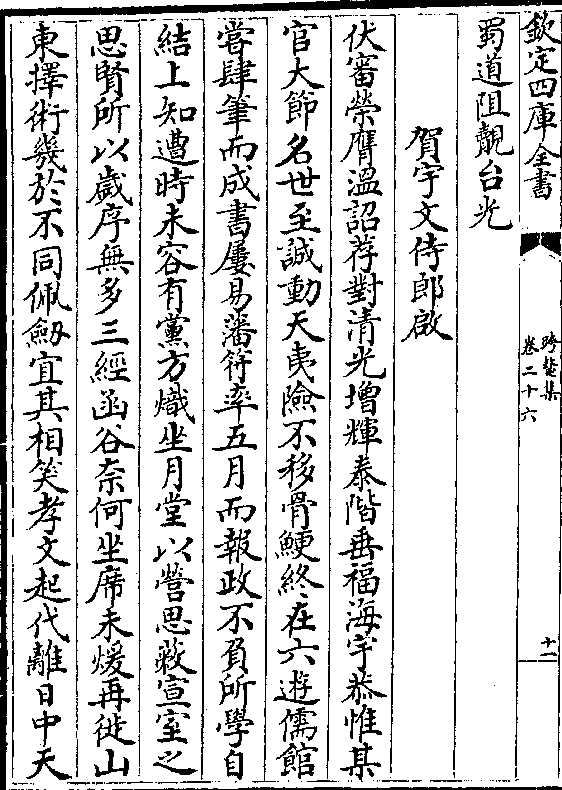 欽定四庫全書
跨鼇集
卷二十六
十一
蜀道阻覿台光
賀宇文侍郎啟
伏審榮膺溫詔荐對清光增輝泰階垂福海宇恭惟某
官大節名世至誠動天夷險不移骨鯁終在六遊儒館
嘗肆筆而成書屢易藩符率五月而報政不負所學自
結上知遭時未容有黨方熾坐月堂以營思救宣室之
思賢所以歲序無多三經函谷奈何坐席未煖再徙山
東擇術幾於不同佩劔宜其相笑孝文起代離日中天